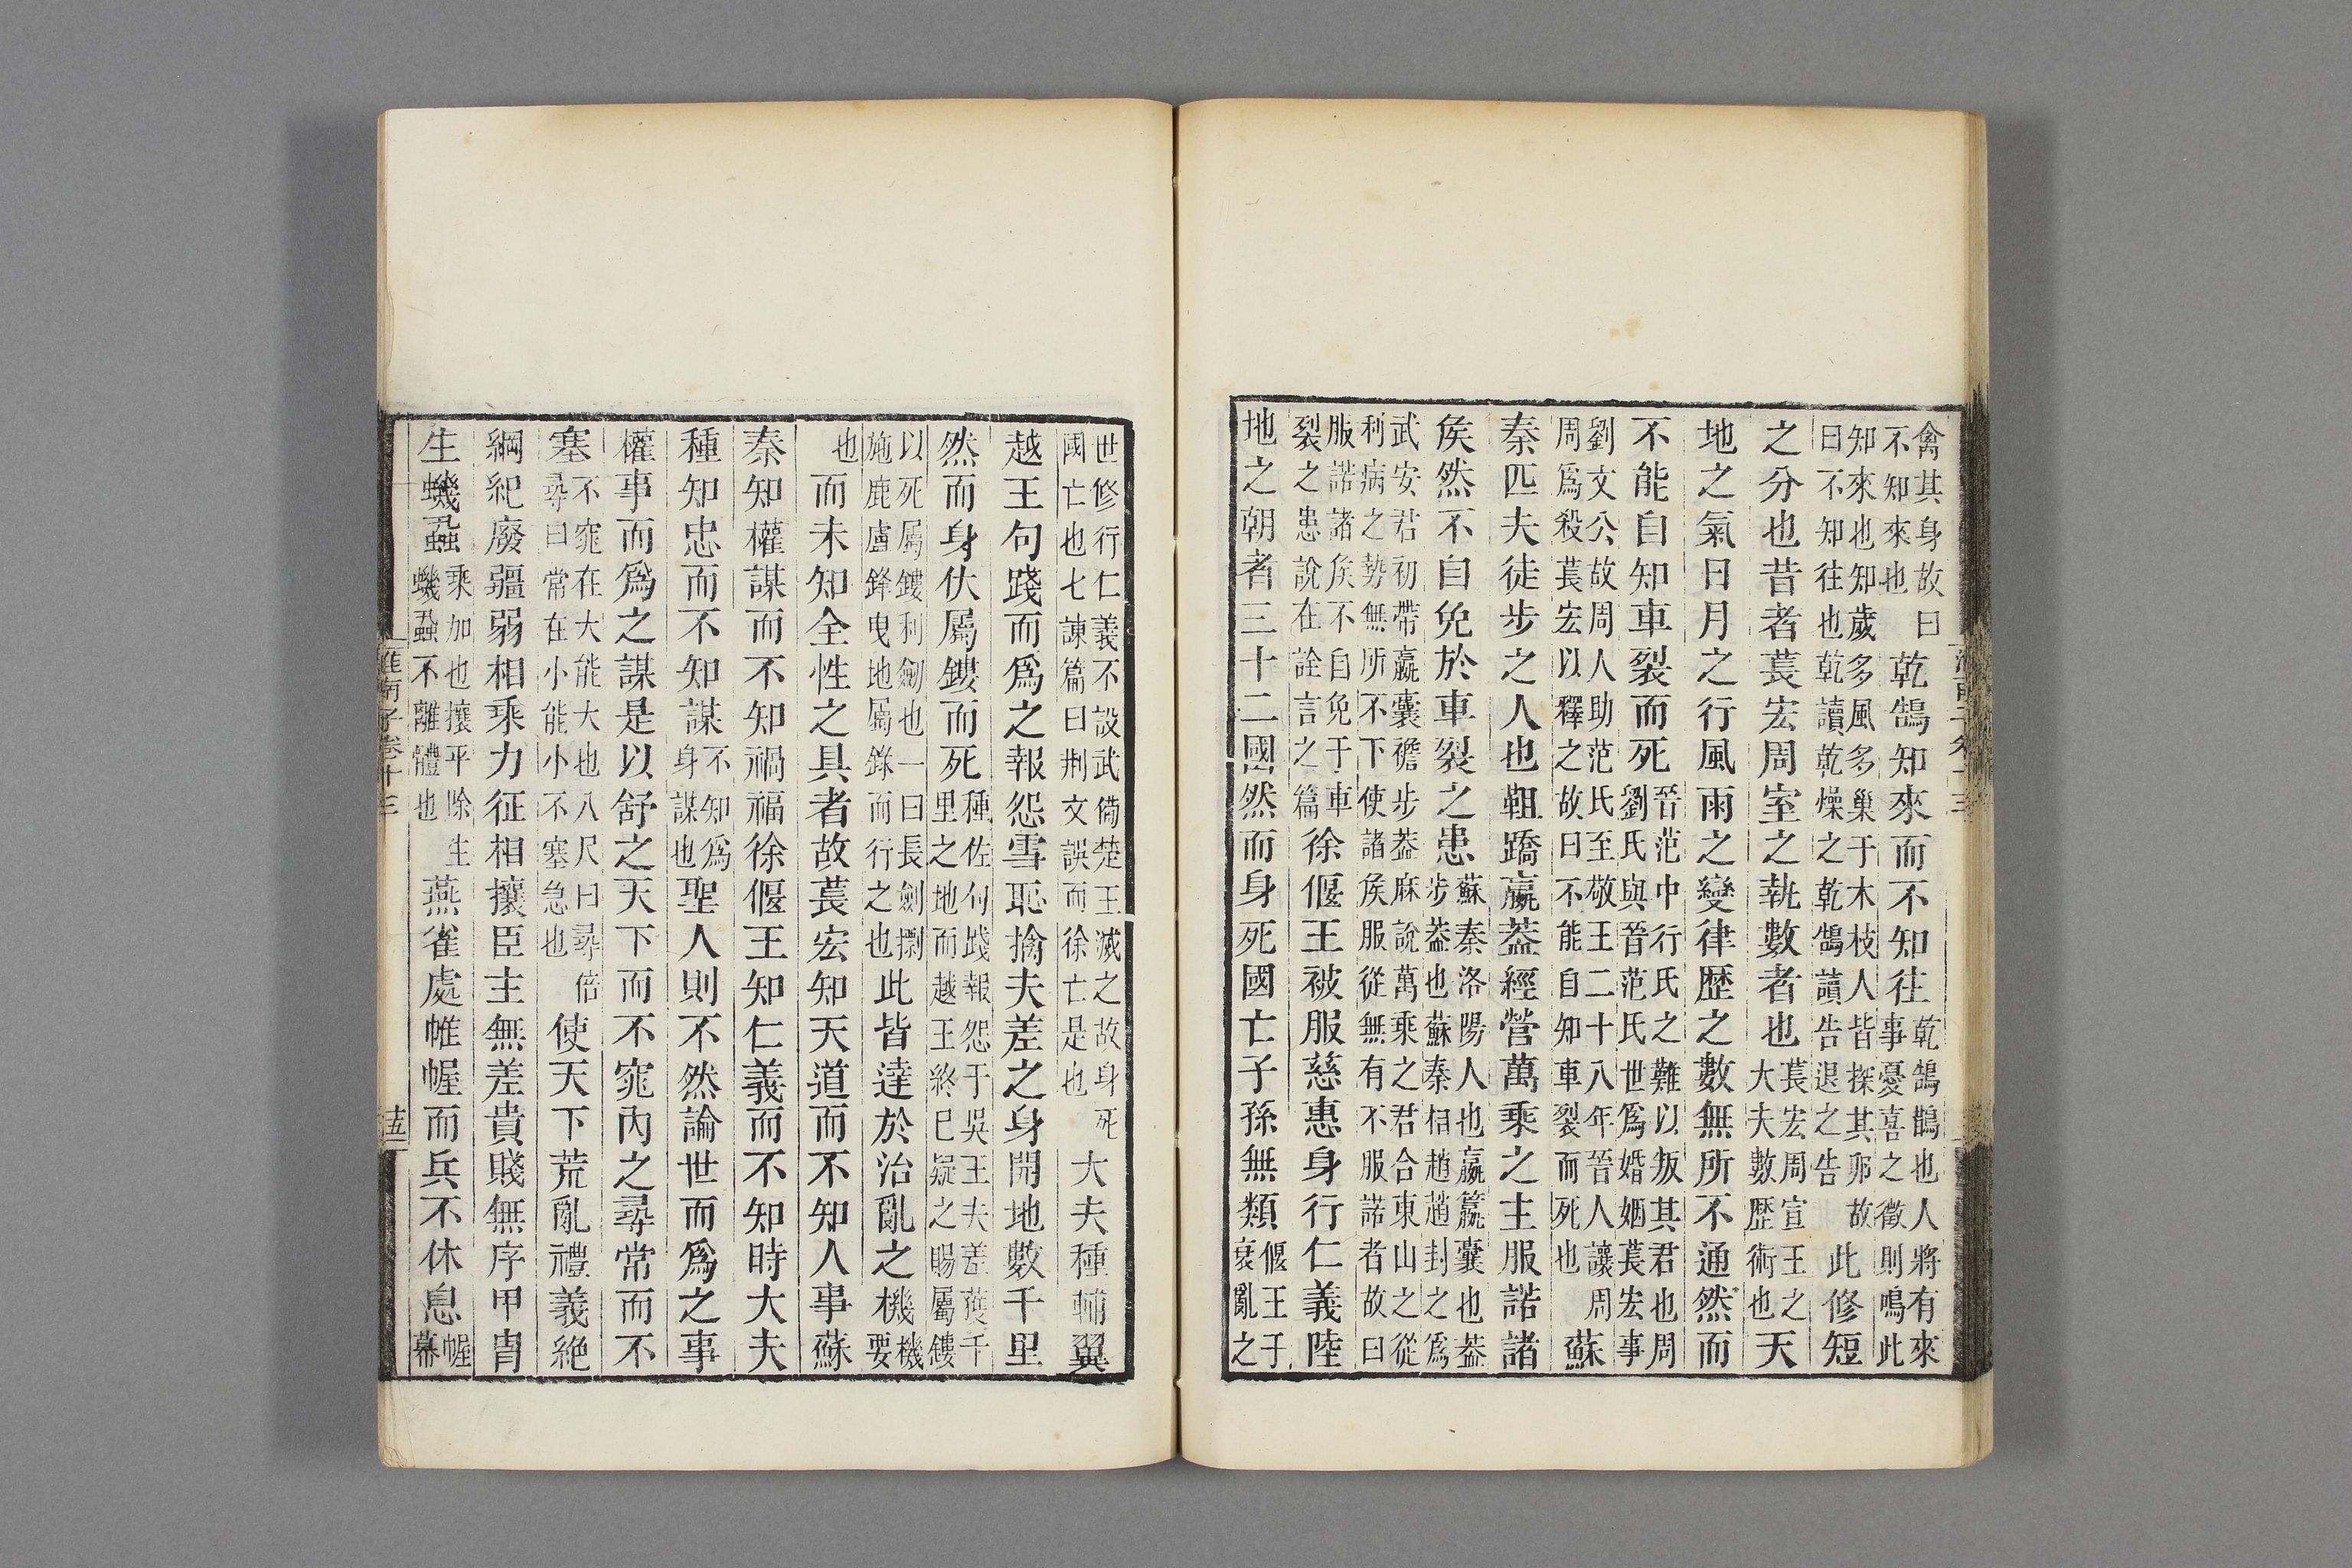 禽其身故曰不知來也乾鵠知來而不知往乾鵠鵲也人將有來事憂喜之徵則鳴此
知來也知歲多風多巢于木枝人皆探其卵故曰不知往也乾讀乾燥之乾鵠讀告退之告此修短
之分也昔者萇宏周室之執數者也萇宏周宣王之大夫數歷術也天
地之氣日月之行風雨之變律歷之數無所不通然而
不能自知車裂而死晉范中行氏之難以叛其君也周劉氏與晉范氏世爲婚姻萇宏事
劉文公故周人助范氏至敬王二十八年晉人讓周周爲殺萇宏以釋之故曰不能自知車裂而死也蘇
秦匹夫徒步之人也靻蹻嬴蓋經營萬乘之主服諾諸
矦然不自免於車裂之患蘇秦洛陽人也嬴籯囊也蓋步蓋也蘇秦相趙趙封之爲
武安君初帶嬴囊襜步蓋麻說萬乘之君合東山之從利病之勢無所不下使諸矦服從無有不服諾者故曰
服諾諸矦不自免于車裂之患說在詮言之篇徐偃王被服慈惠身行仁義陸
地之朝者三十二國然而身死國亡子孫無類偃王于衰亂之
世修行仁義不設武備楚王滅之故身死國亡也七諫篇曰荆文誤而徐亡是也大夫種輔翼
越王句踐而爲之報怨雪恥擒夫差之身開地數千里
然而身伏屬鏤而死種佐句踐報怨于吳王夫差獲千里之地而越王終巳疑之賜屬鏤
以死屬鏤利劍也一曰長劍摽施鹿盧鋒曳地屬錄而行之也此皆達於治亂之機機要
也而未知全性之具者故萇宏知天道而不知人事蘇
秦知權謀而不知禍福徐偃王知仁義而不知時大夫
種知忠而不知謀不知爲身謀也聖人則不然論世而爲之事
權事而爲之謀是以舒之天下而不窕內之尋常而不
塞不窕在大能大也八尺曰尋倍尋曰常在小能小不塞急也使天下荒亂禮義絶
綱紀廢彊弱相乘力征相攘臣主無差貴賤無序甲胄
生蟣蝨乘加也攘平除生蟣蝨不離體也燕雀處帷幄而兵不休息幄幕
淮南子卷十三
十五